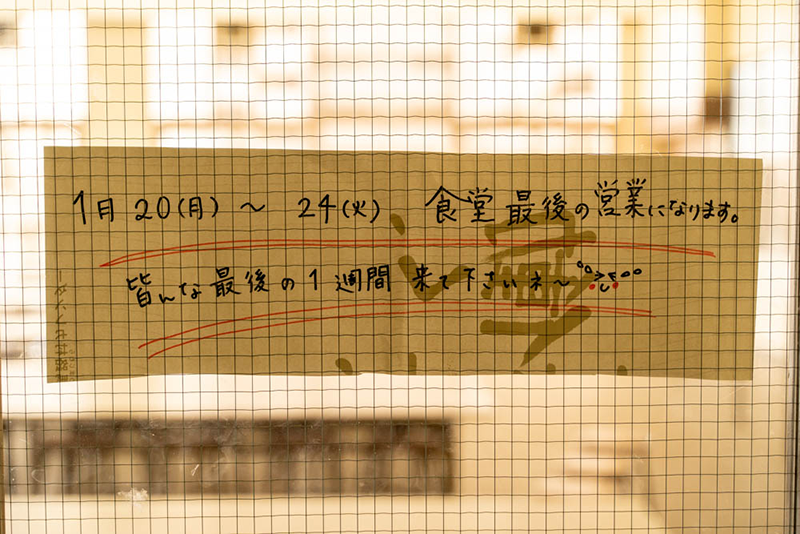 1月 20(月) 〜 24(火) 食堂 最後の営業になります。
皆んな最後の1週間 来て下さいネ〜